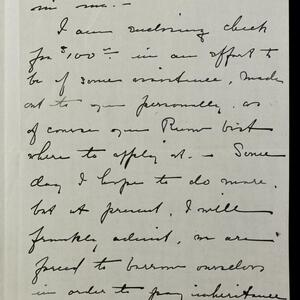 in me. -
I am enclosing check
for $100.00 in an effort to
be of some assistance, made
out to you personally, as
of course you know best
where to apply it. - Some
day I hope to do more,
but at present, I will
frankly admit, we are
forced to borrow ourselves
in order to pay inheritance